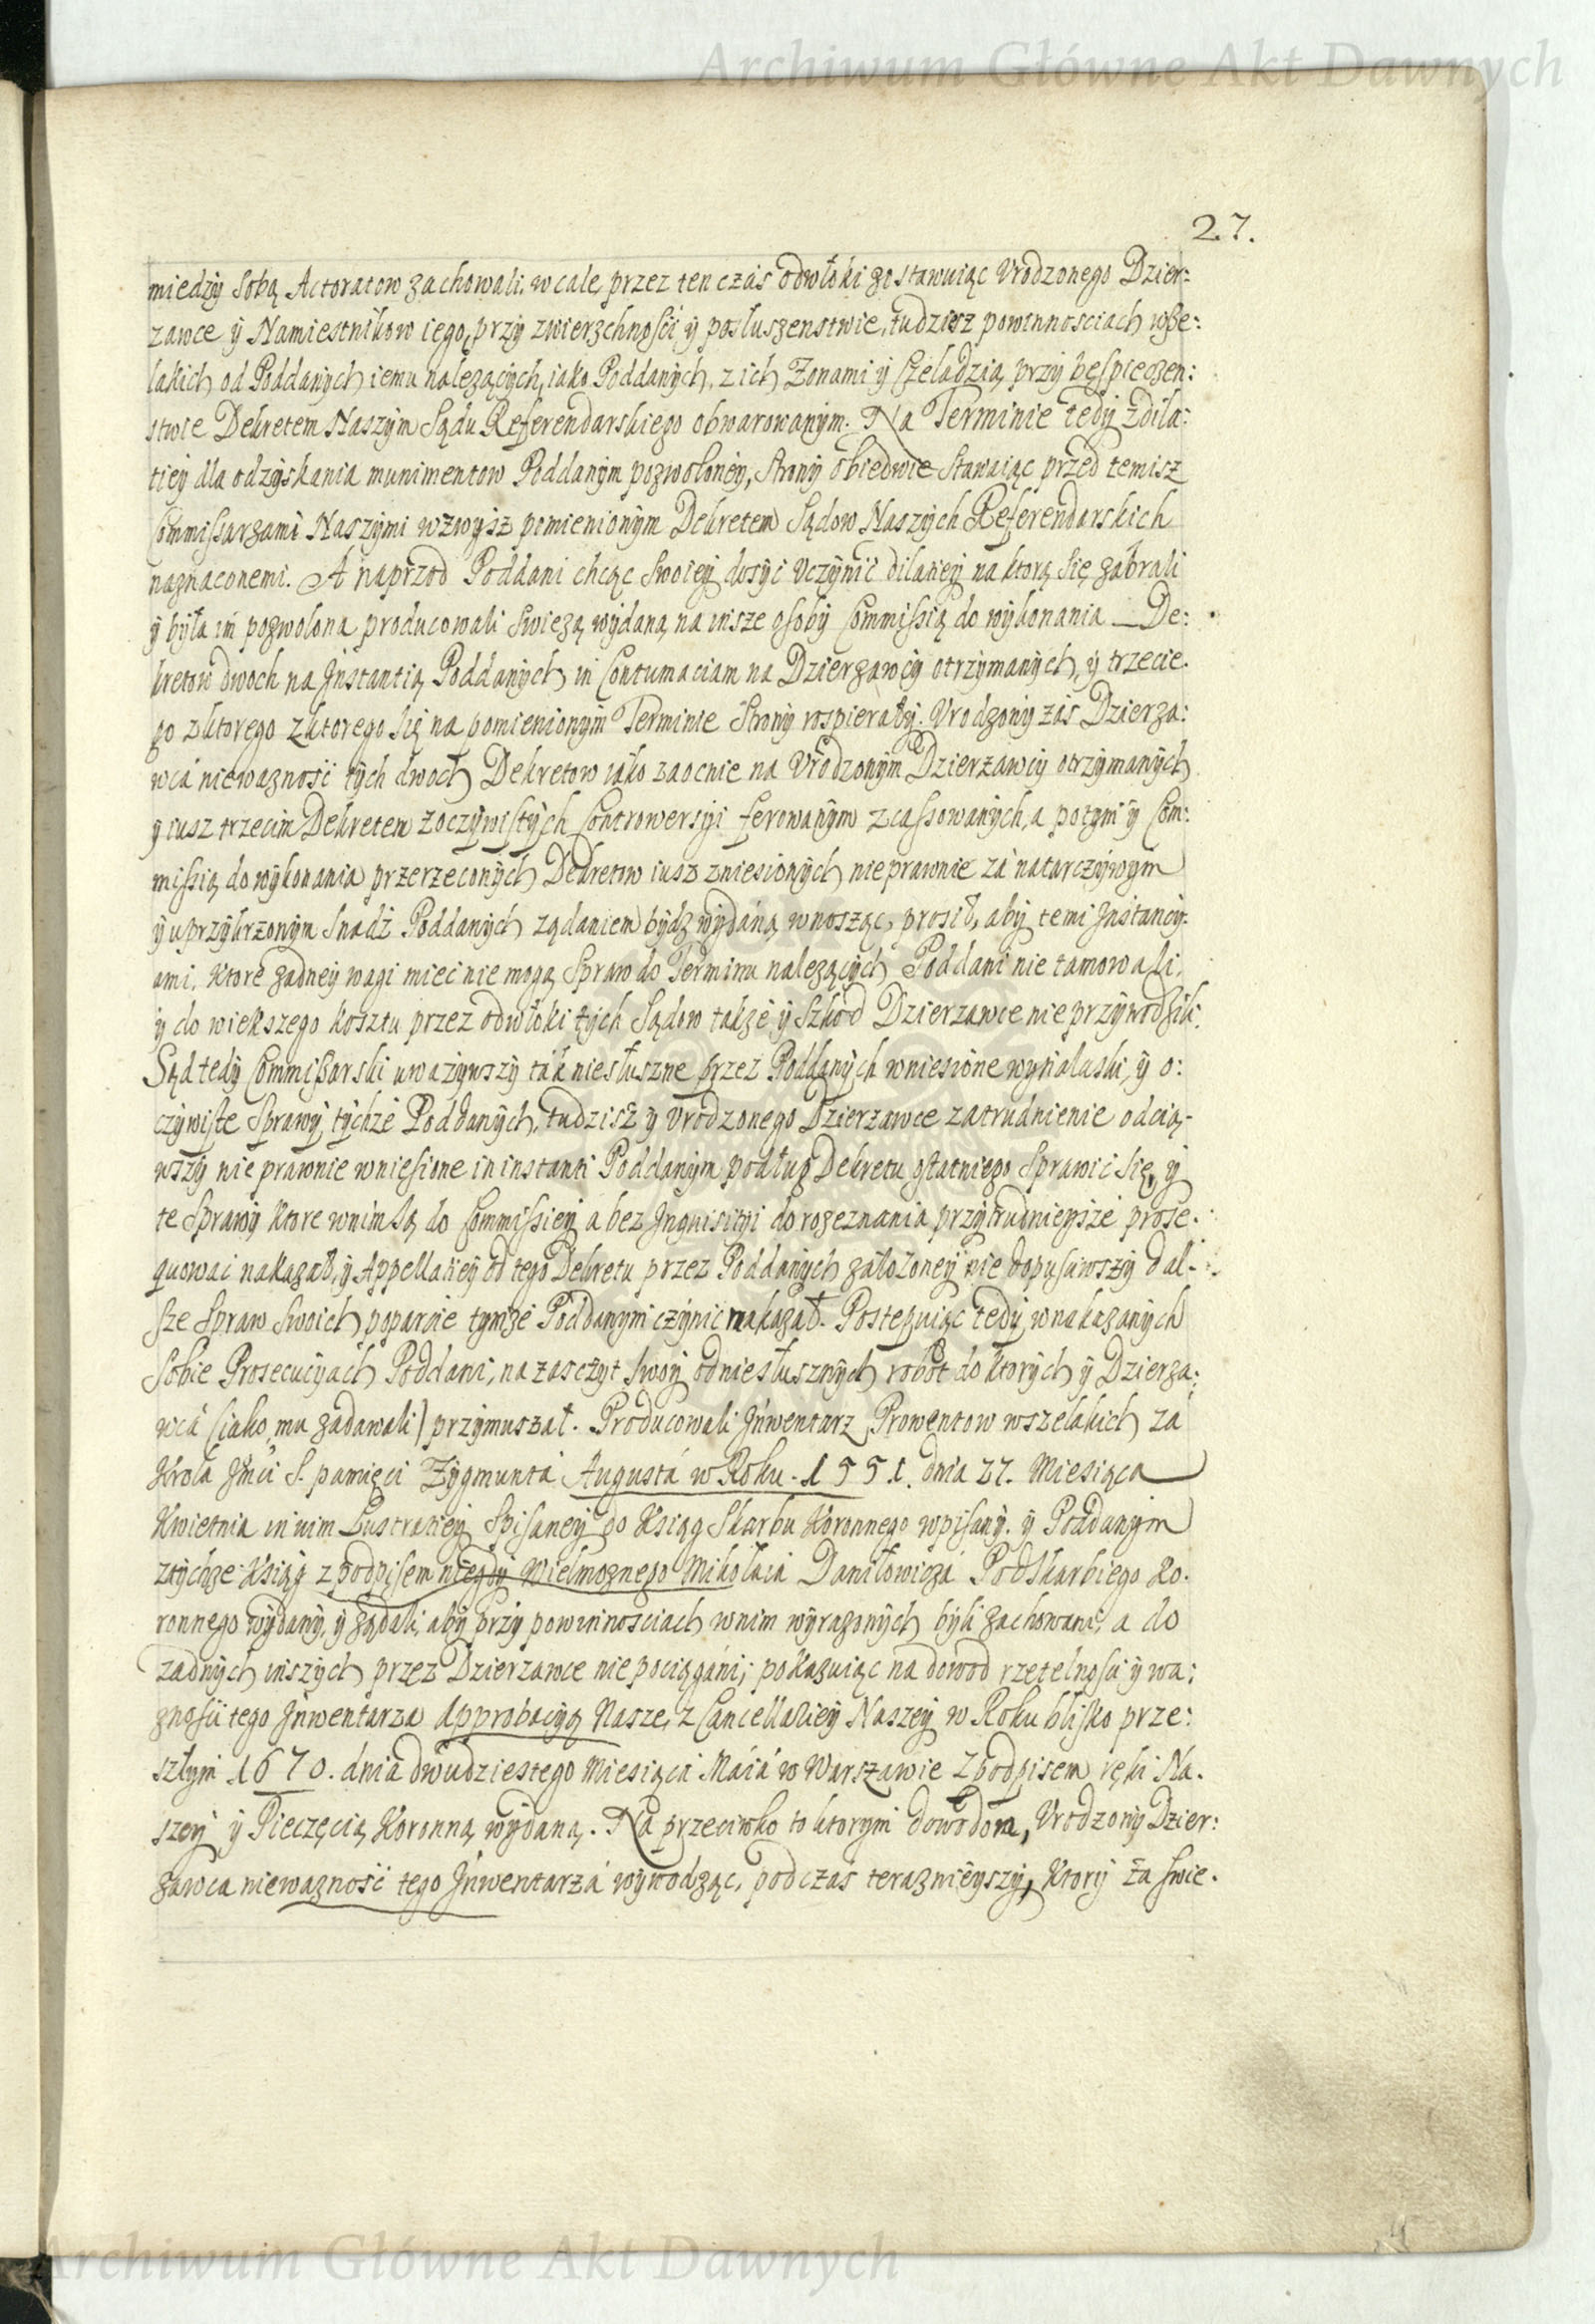 Archiwum Główne Akt Dawnych
27.
miedzy sobą Actoratow zachowali. w cale, przez ten czas odwłoki zostawuiąc Vrodzonego Dzier:
zawce ÿ Namiestnikow iego, przÿ zwierzchnosci ÿ posłuszenstwie, tudziesz powinnosciach wsze:
lakich od Poddanÿch iemu nalezącÿch, iako Poddanÿch, z ich Zonami ÿ Czeladzią przÿ bespieczen:
stwie Dekretem Naszÿm Sądu Referendarskiego obwarowanÿm. Na Terminie tedÿ z dila:
tieÿ dla odzÿskania munimentow Poddanÿm pozwoloneÿ, Stronÿ obiedwie Stawaiąc przed temisz
Commissarzami Naszÿmi wzwÿsz pomienionÿm Dekretem Sądow Naszÿch Referendarskich
naznaconemi. A naprzod Poddani chcąc Swoieÿ dosÿc Vczÿnic dilatieÿ na ktorą się zabrali
ÿ bÿła im pozwolona producowali Swiezą wÿdaną na insze osobÿ Commissią do wÿkonania De:
kretow dwoch na Jnstantią Poddanÿch in Contumaciam na Dzierzawcÿ otrzÿmanÿch, ÿ trzecie.
go z ktorego z ktorego się na pomienionÿm Terminie Stronÿ rospierałÿ. Vrodzonÿ zas Dzierza:
wca niewaznosc tÿch dwoch Dekretow iako zaocnie na Vrodzonÿm Dzierzawcÿ otrzÿmanÿch
ÿ iusz trzecim Dekretem z oczÿwistÿch Controwersÿi ferowanÿm zcassowanÿch, a potÿm ÿ Com:
missią do wÿkonania przerzeconÿch Dekretow iusz zniesionÿch nieprawnie za natarczÿwÿm
ÿ uprzÿkrzonÿm Snadz Poddanÿch ządaniem bÿdz wÿdaną wnosząc, prosił, abÿ temi Jnstancÿ:
ami, ktore zadneÿ wagi miec nie mogą Spraw do Terminu nalezącÿch Poddani nie tamowali,
ÿ do wiekszego kosztu przez odwłoki tÿch Sądow takze ÿ Szkod Dzierzawce nie przÿwodzili.
Sąd tedÿ Commissarski uwazÿwszÿ tak niesłuszne przez Poddanÿch wniesione wÿnalaski, ÿ o:
czÿwiste Sprawÿ tÿchze Poddanÿch, tudzisz ÿ Vrodzonego Dzierzawce zatrudnienie odcią-
wszÿ nie prawnie wniesione in instanti Poddanÿm podług Dekretu ostatniego Sprawic Się, ÿ
te Sprawÿ ktore w nim Są do Commissieÿ a bez Jnquisitÿi do rozeznania przÿtrudnieÿsze prose.
quowac nakazał, ÿ Appellatieÿ od tego Dekretu przez Poddanÿch załozoneÿ nie dopusciwszÿ dal-
sze Spraw Swoich poparcie tÿmze Poddanÿm czÿnic nakazał. Postępuiąc tedÿ w nakazanÿch
Sobie Prosecucÿach Poddani, na zasczÿt swoÿ od niesłusznÿch robot do ktorÿch ÿ Dzierza:
wca (iako mu zadawali) przÿmuszał. Producowali Jnwentarz Prowentow wszelakich za
Krola Jmci S. pamięci Zÿgmunta Augusta w Roku. 1551. dnia 27. Miesiąca
Kwietnia in vim Lustratieÿ Spisaneÿ do Ksiąg Skarbu Koronnego wpisanÿ. ÿ Poddanÿm
z tÿchze Ksiąg z podpisem niegdÿ Wielmoznego Mikołaia Daniłowicza Podskarbiego Ko.
ronnego wÿdanÿ, ÿ ządali, abÿ przÿ powinnosciach w nim wÿrazonÿch bÿli zachowani, a do
zadnÿch inszÿch przez Dzierzawce nie pociągani; pokazuiąc na dowod rzetelnosci ÿ wa:
znosci tego Jnwentarza Approbacÿą Nasze, z Cancellarieÿ Naszeÿ w Roku blisko prze:
szłÿm 1670. dnia dwudziestego Miesiąca Maia w Warszawie z podpisem ręki Na.
szeÿ ÿ Pieczęcią Koronną wÿdaną. Na przeciwko to ktorÿm dowodom, Vrodzonÿ Dzier:
zawca niewaznosc tego Jnwentarza wÿwodząc, podczas teraznieÿszÿ, ktorÿ za swie.
Archiwum Główne Akt Dawnych